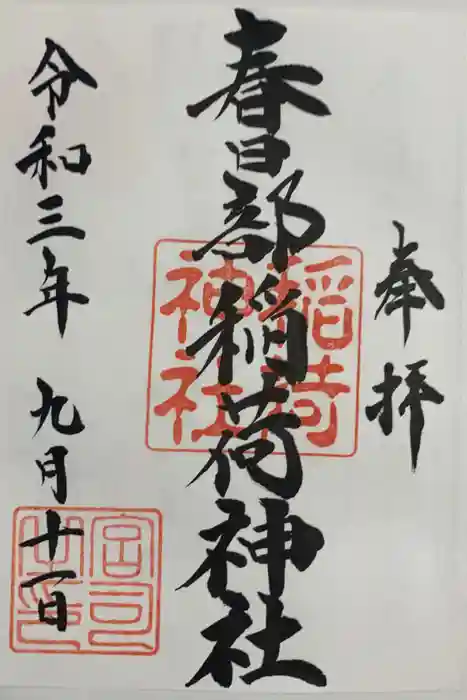 奉拝
春日部稲荷神社
稲荷神社
令和三年九月十一日
宮司之印